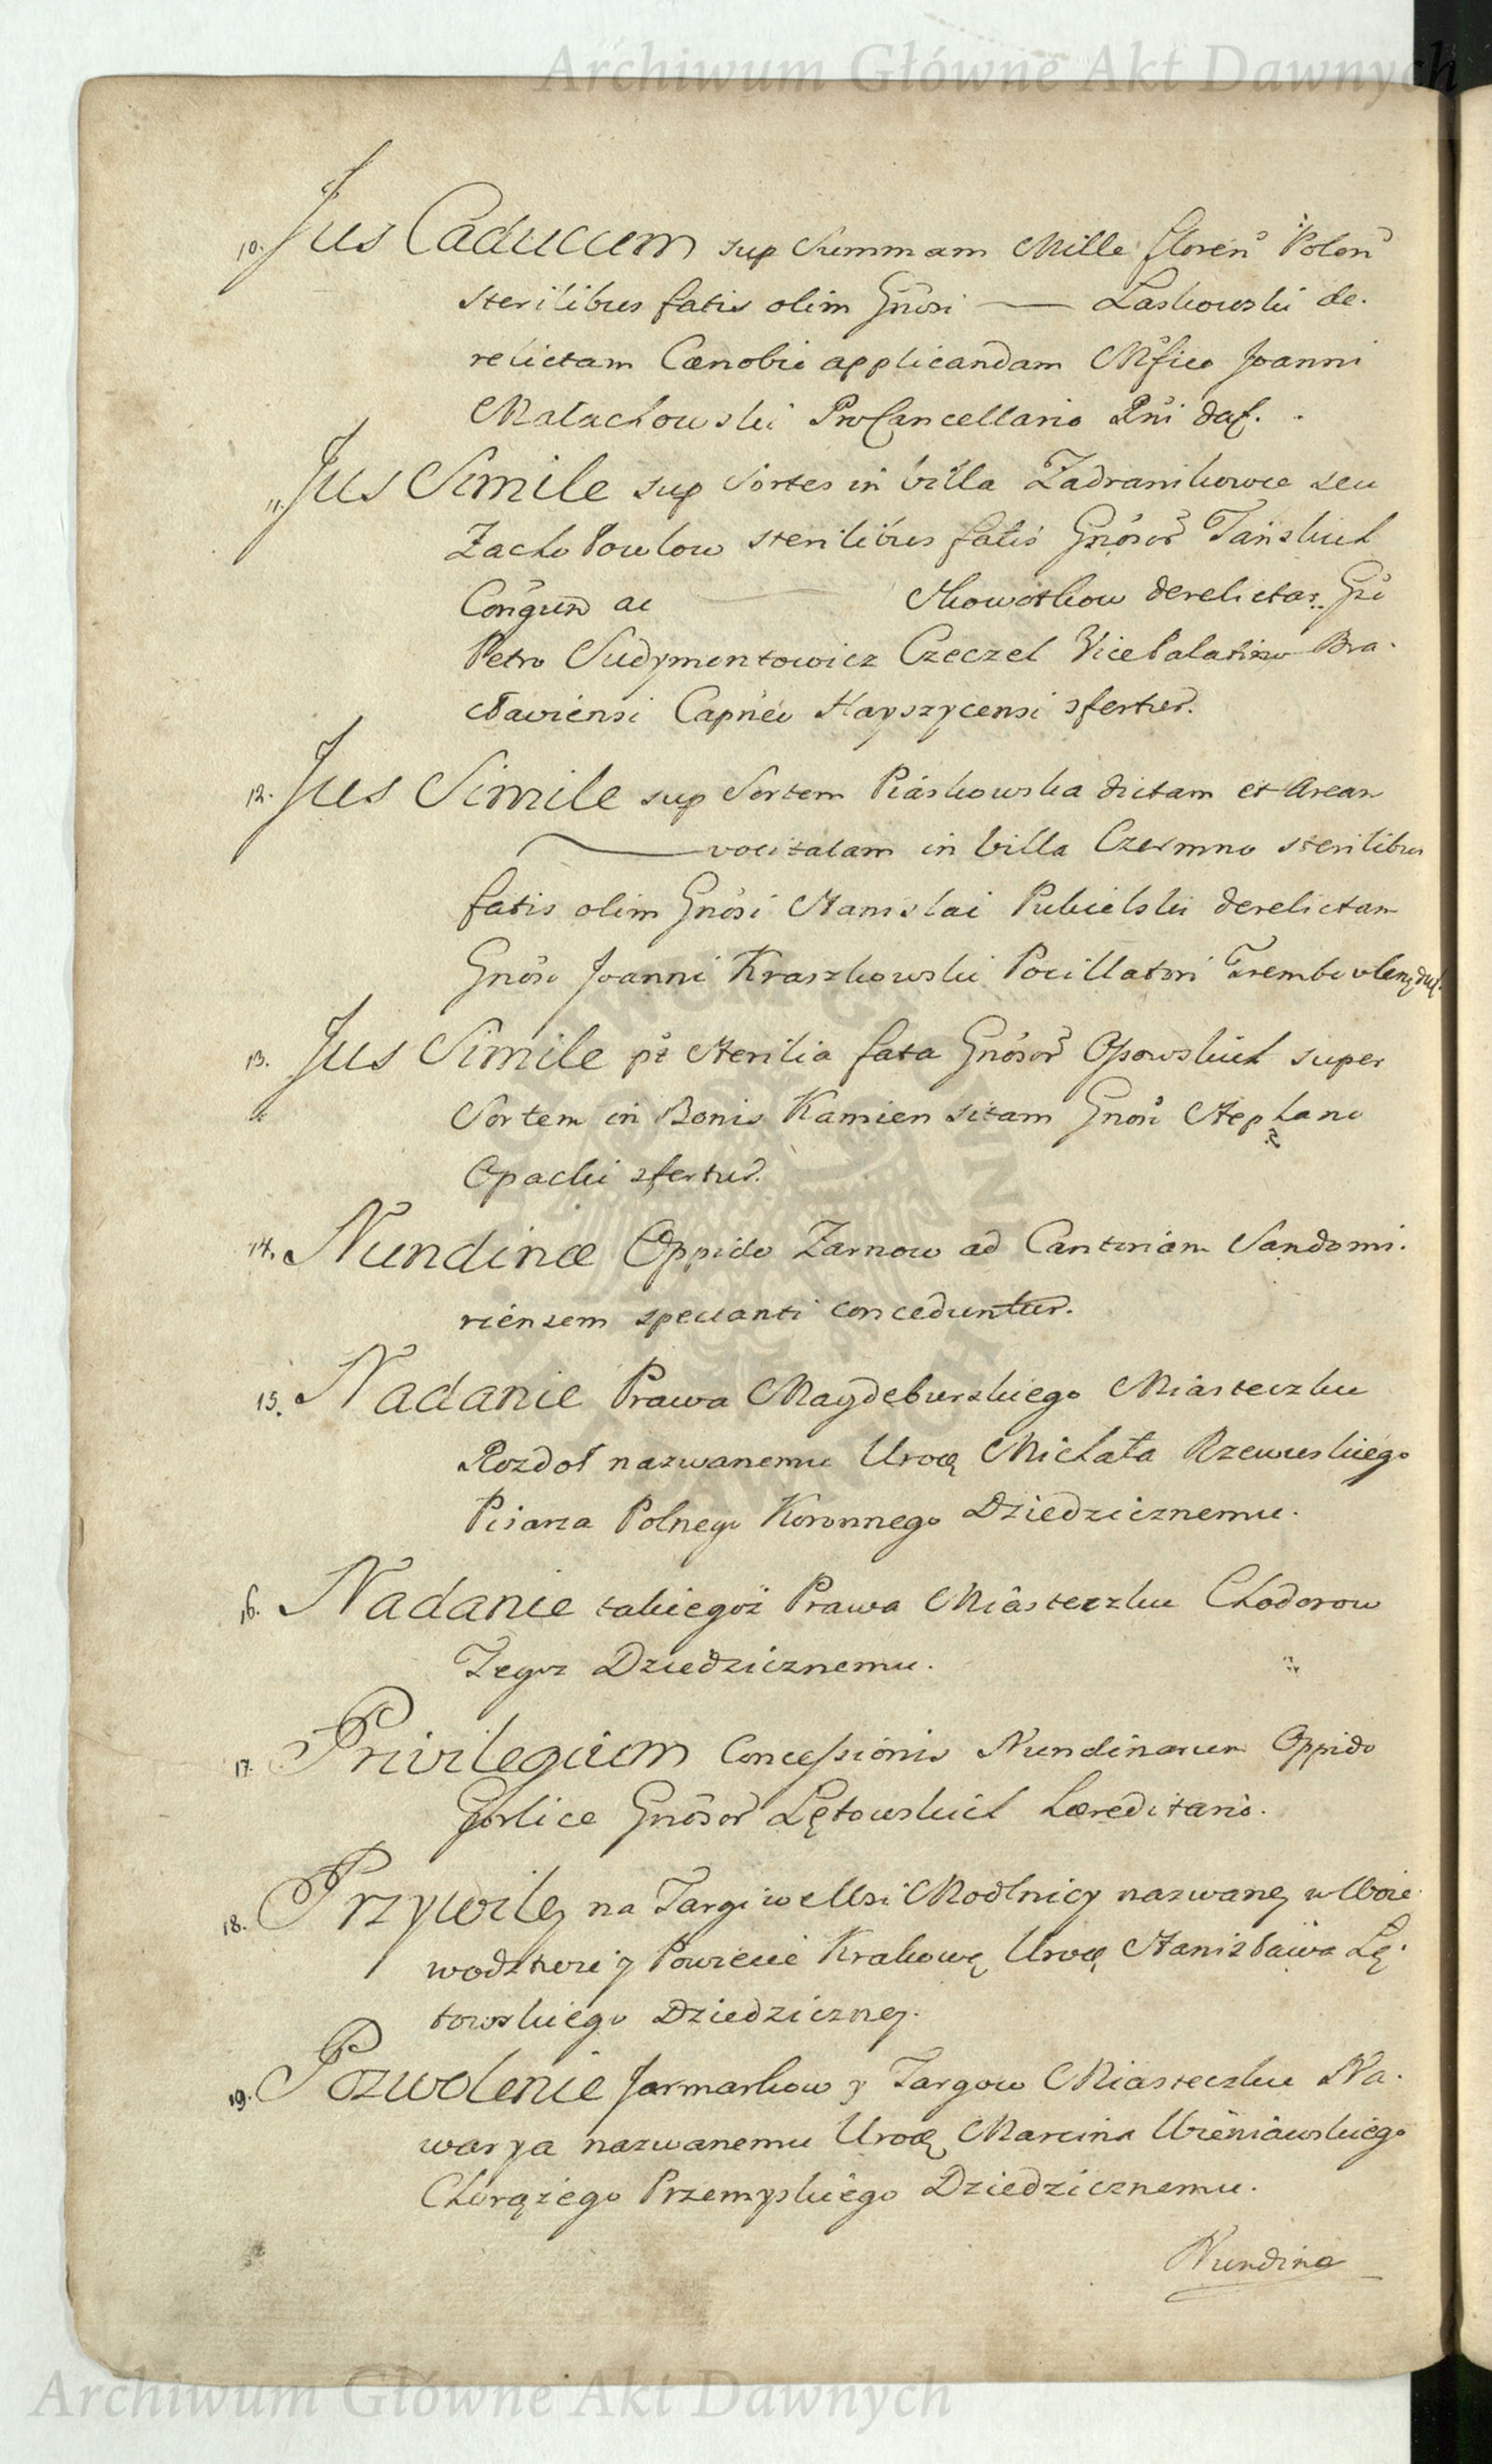 Archiwum Główne Akt Dawnych
10. Jus Caducum sup Summam Mille floren Polon
sterilibus fatis olim Gnosi — Laskowski de-
relictam Cœnobio applicandam Mfico Joanni
Małachowski ProCancellario Rni daf.
11. Jus Simile sup Sortes in villa Zadranikowce seu
sterilibus fatis Gnosor Tańskich
Congun ac derelictas Gno
Petro Sudymontowicz Czeczel VicePalatino Bra-
cłaviensi Capneo Hayszycensi sfertur.
12. Jus Simile sup Sortem Piaskowska dictam et Aream
— vocitatam in villa Czermno sterilibus
fatis olim Gnosi Stanislai Pukielski derelictam
Gnoso Joanni Kraszkowski Pocillatori Trembovlens daf.
13. Jus Simile pt sterilia fata Gnosor Ossowskich super
Sortem in Bonis Kamien sitam Gnoso Stephano
Opacki sfertur.
14. Nundinæ Oppido Zarnow ad Cantoriam Sandomi-
riensem spectanti conceduntur.
15. Nadanie Prawa Magdeburskiego Miasteczku
Rozdoł nazwanemu Uroę Michała Rzewuskiego
Pisarza Polnego Koronnego Dziedzicznemu.
16. Nadanie takiegoż Prawa Miasteczku Chodorow
Tegoz Dziedzicznemu.
17. Privilegium Concessionis Nundinarum Oppido
Gorlice Gnosor Lętowskich hæreditario.
18. Przywiley na Targi w Wsi Modlnicy nazwaney w Woie-
wodztwie y Powiecie Krakowę Uroę Stanisława Lę-
towskiego Dziedziczney.
19. Pozwolenie Jarmarkow y Targow Miasteczku Na-
warya nazwanemu Uroę Marcina Wieniawskiego
Chorążego Przemyskiego Dziedzicznemu.
Nundinæ
Archiwum Główne Akt Dawnych